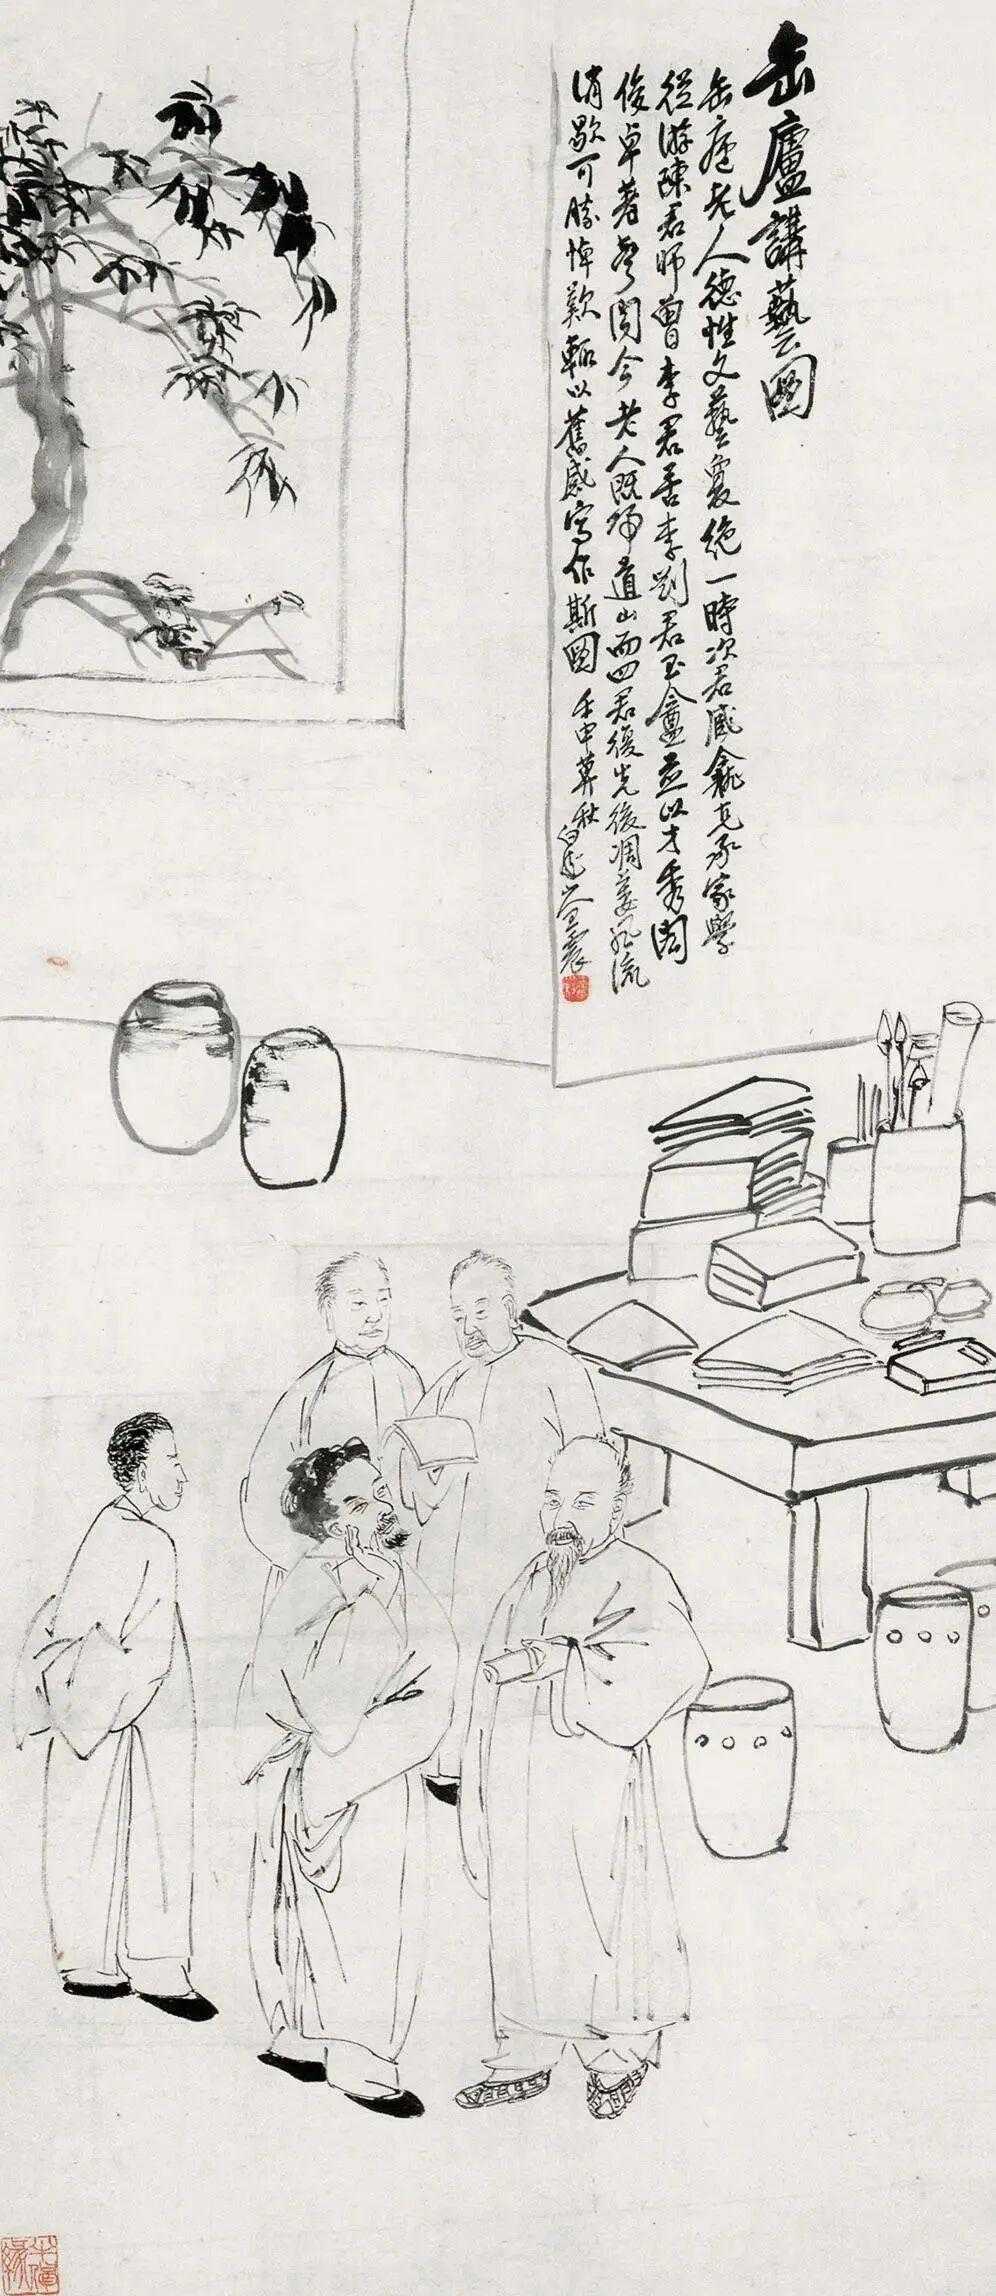 缶廬講藝圖
缶廬老人德性文藝敻絕一時次君臧龕克承家學
從游陳君師曾李君苦李劉君玉盦並以才秀閎
俊卓著聲聞今老人既歸道山而四君復先後凋萎風流
消歇可勝悼歎輒以舊感寫作斯圖 壬申莫秋白龍山人王震